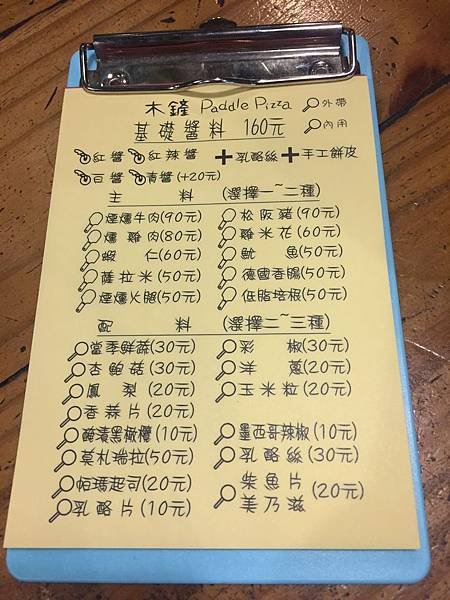 木鏟 Paddle Pizza 外帶
基礎醬料 160元 內用
紅醬 紅辣醬 + 乳酪絲 + 手工餅皮
白醬 青醬 (+20元)
主料 (選擇一~二種)
煙燻牛肉(90元) 松阪豬(90元)
燻雞肉(80元) 雞米花(60元)
蝦仁(60元) 魷魚(50元)
薩拉米(50元) 德國香腸(50元)
煙燻火腿(50元) 低脂培根(50元)
配料 (選擇二~三種)
當季鮮蔬(30元) 彩椒(30元)
杏鮑菇(30元) 洋蔥(20元)
鳳梨(20元) 玉米粒(20元)
香蒜片(20元)
醃漬黑橄欖(10元) 墨西哥辣椒(10元)
莫札瑞拉(50元) 乳酪絲(30元)
帕瑪起司(20元) 柴魚片
美乃滋 (20元)
乳酪片(10元)